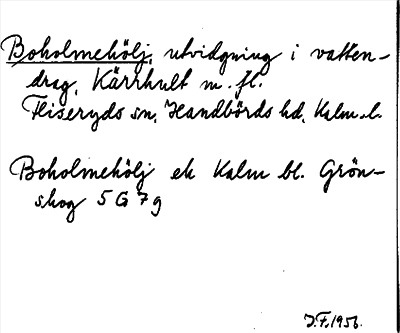 Boholmehölj, utvidgning i vatten-
drag, Kärrhult m. fl.
Fliseryds sn, Handbörds hd, Kalm. l.
Boholmehölj ek Kalm bl. Grön-
skog 5 G 7 g
J.F. 1956.